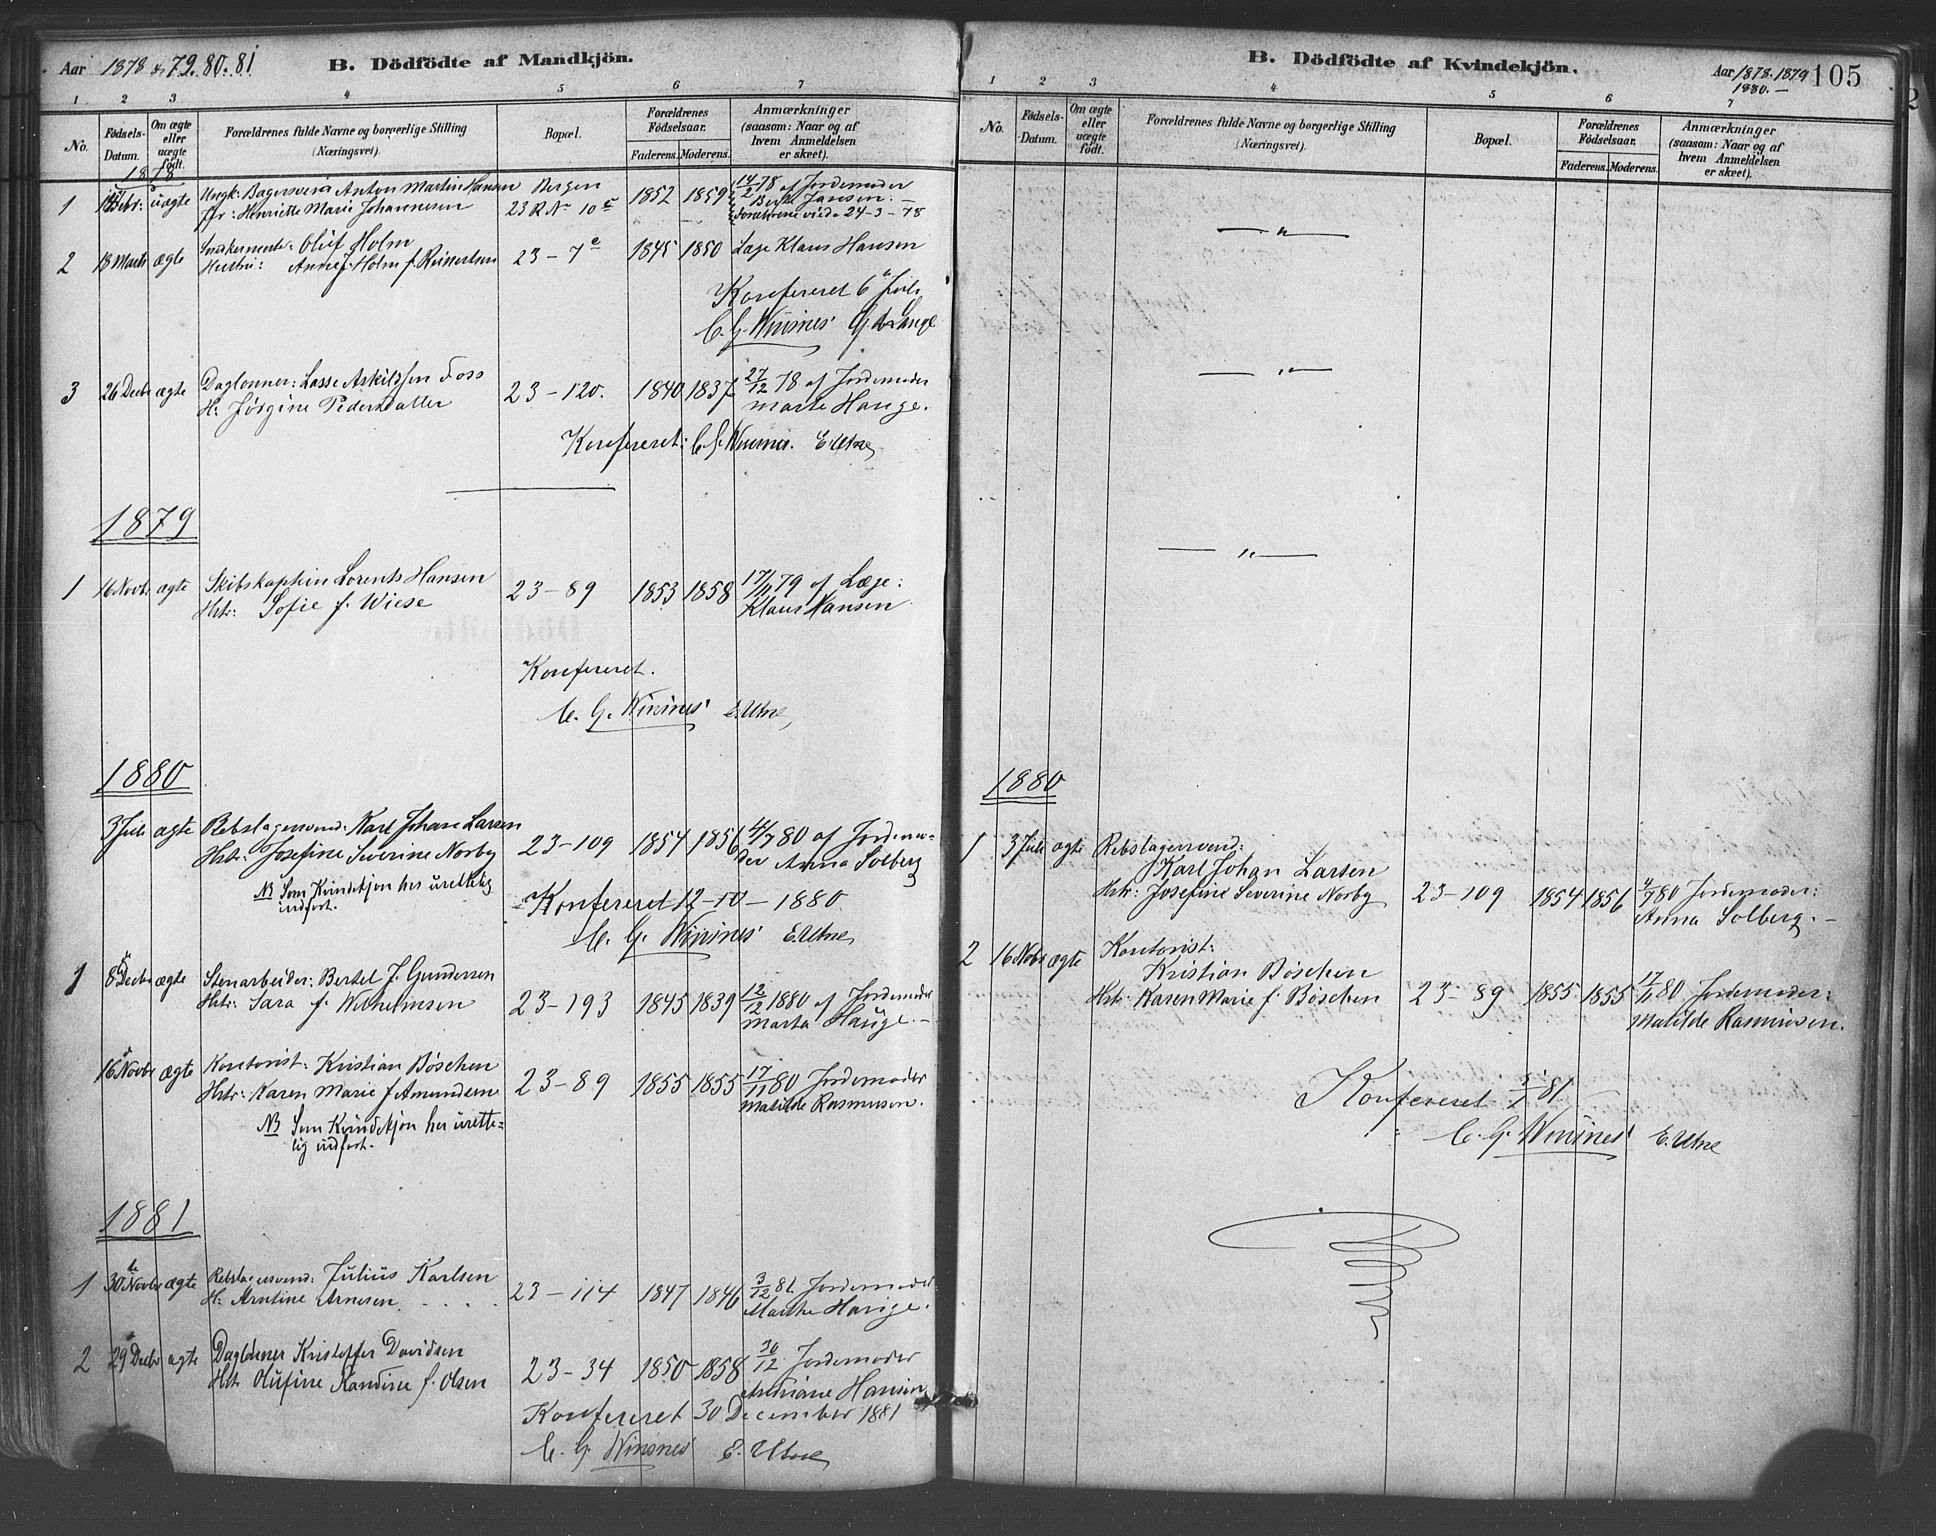 Aar 1878 & 79. 80. 81
B. Dödfödte af Mandkjön.
1 2 3 4 5 6 7
No.
Födsels-Datum.
Om ægte eller uægte födt.
Forældrenes fulde Navne og borgerlige Stilling (Næringsvei).
Bopæl.
Forældrenes Födselsaar.
Faderens. Moderens.
Anmærkninger (saasom: Naar og af hvem Anmeldelsen er skeet).
1878
1 Febr: uægte Ungk: Bagersvend Anton Martin Hansen Bergen 1852 1859 14/2 78 af Jordemoder
Pg: Henriette Marie Johannesen 23 R No 10 c Jansen. —
Forældrene viede 24-3-78
2 18 Marts ægte Snekkermester: Oluf Holm 23 - 7 e 1845 1850 Læge Klaus Hansen
Hustru: Anne J. Holm f. Reinertsen
Konfereret 6
C. G. Winsnes
3 26 Decbr ægte Daglönner: Lasse Askildsen Foss 23 - 120. 1840 1837 27/12 78 af Jordemoder
H: Jörgine Pedersdatter Marte Hauge.
Konfereret: C. G. Winsnes. E. Utne
1879
1 16 Novbr ægte Skibskaptein Lorents Hansen 23 - 89 1853 1858 17/11 79 af Læge:
Hstr: Sofie f. Wiese Klaus Hansen
Konfereret.
C. G. Winsnes E. Utne,
1880
3 Juli ægte Rebslagersvend: Karl Johan Larsen 23 - 109 1854 1856 4/7 80 af Jordemo-
Hstr: Josefine Severine Norby der Anna Solberg
NB Som Kvindekjön her urettelig
indfört.
Konfereret 12 - 10 - 1880
C. G. Winsnes E. Utne
1 8 Decbr ægte Stenarbeider: Bertel J. Gundersen 23 - 193 1845 1839 12/12 1880 af Jordemoder
Hstr: Sara f. Wilhelmsen Marta Hauge. —
16 Novbr ægte Kontorist: Kristian Böschen 23 - 89 1855 1855 17/11 80 Jordemoder
Hstr: Karen Marie f. Amundsen Matilde Rasmusen.
NB Som Kvindekjön her urette-
lig indfört.
1881
1 30 Novbr ægte Rebslagersvend: Julius Karlsen 23 - 114 1847 1846 3/12 81. Jordemoder
H: Arntine Arnesen. Marthe Hauge.
2 29 Decbr ægte Daglönner Kristoffer Davidsen 23 - 34 1850 1858 30/12 Jordemoder
Hstr Olufine Kandine f. Olsen Hansen
Konfereret 30 December 1881
C. G. Winsnes E. Utne
B. Dödfödte af Kvindekjön.
Aar 1878. 1879
1880. —
105
1 2 3 4 5 6 7
No.
Födsels-Datum.
Om ægte eller uægte födt.
Forældrenes fulde Navne og borgerlige Stilling (Næringsvei).
Bopæl.
Forældrenes Födselsaar.
Faderens. Moderens.
Anmærkninger (saasom: Naar og af hvem Anmeldelsen er skeet).
— " —
— " —
— " —
1880
1 3 Juli ægte Rebslagersvend:
Karl Johan Larsen
Hstr: Josefine Severine Norby 23 - 109 1854 1856 4/7 80 Jordemoder:
Anna Solberg. —
2 16 Novbr ægte Kontorist:
Kristian Böschen
Hstr: Karen Marie f. Böschen 23 - 89 1855 1855 17/11 80 Jordemoder:
Matilde Rasmusen.
Konfereret 5/1 81
C. G. Winsnes E. Utne